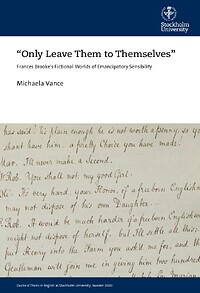 Stockholm
University
“Only Leave Them to Themselves”
Frances Brooke’s Fictional Worlds of Emancipatory Sensibility
Michaela Vance
has said 'tis plain enough he is not worth a penny, so you
shant have him. a pretty Choice you have made.
Mar. I'll never make a Second.
W Rob. You shall not, my good Girl.
It's very hard, your Honor, if a freeborn Englishm
may not dispose of his own Daughter.
Rob. It wou'd be much harder if a freeborn Englishm
might not dispose of herself. but I'll settle all this.
put Henry into the Farm you ask'd me for, and th
Gentleman will join me in giving him two hundred
Doctoral Thesis in English at Stockholm University, Sweden 2020